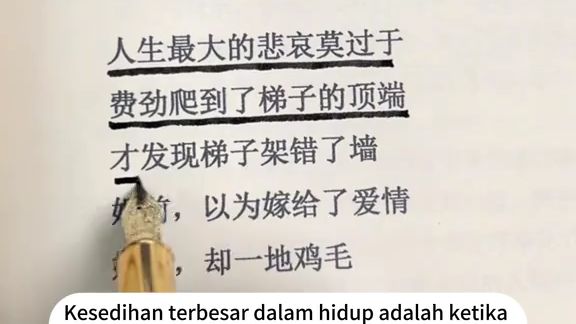 人生最大的悲哀莫过于
费劲爬到了梯子的顶端
才发现梯子架错了墙
，以为嫁给了爱情
，却一地鸡毛
Kesedihan terbesar dalam hidup adalah ketika